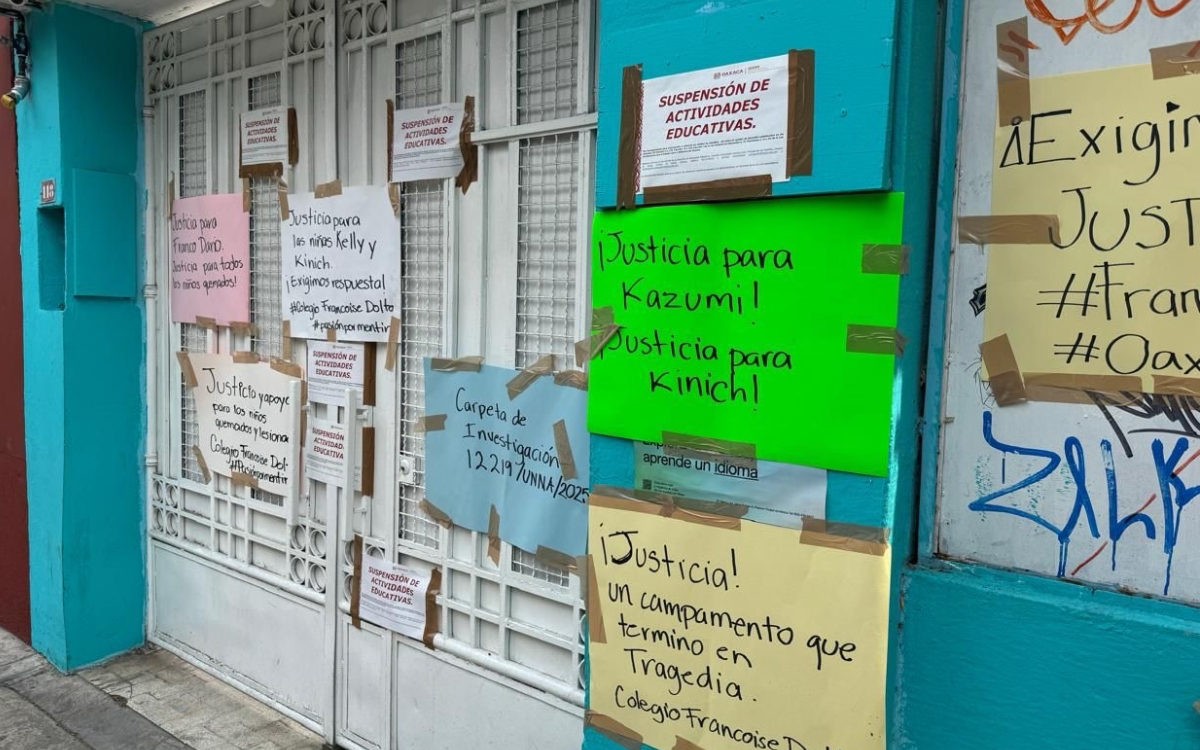 118
SUSPENSIÓN DE
ACTIVIDADES
EDUCATIVAS.
SUSPENSIÓN DE
ACTIVIDADES
EDUCATIVAS.
OAXACA
SUSPENSIÓN DE
ACTIVIDADES
EDUCATIVAS.
Justicia para
Franco Darío.
Justicia para todos
los niños quemados!
Justicia para
las niñas Kelly y
Kinich.
¡Exigimos respuesta!
#Colegio Francoise Dolto
#pasiónpormentir
¡Justicia para
Kazumi!
Justicia para
Kinich!
¡Exigim
JUST
#Fran
#Oax
SUSPENSIÓN DE
ACTIVIDADES
EDUCATIVAS.
Justicia y apoyo
para los niños
quemados y lesiona
Colegio Francoise Dol.
#Pasiónpormentir
SUSPENSIÓN DE
ACTIVIDADES
EDUCATIVAS.
Carpeta de
Investigación
12219/UNNA/2025
aprende un idioma
SUSPENSIÓN DE
ACTIVIDADES
EDUCATIVAS.
¡Justicia!
un campamento que
termino en
Tragedia.
Colegio Francoise Dol